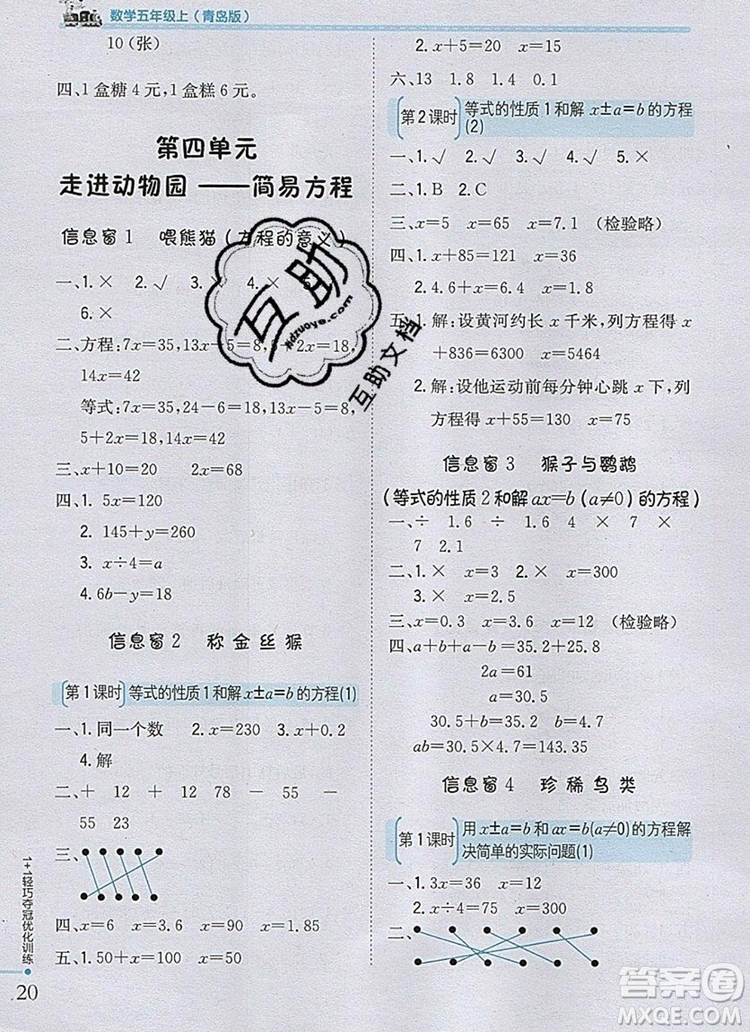 数学五年级上(青岛版)
10(张)
四、1盒糖4元,1盒糕6元。
第四单元
走进动物园 ——简易方程
信息窗1 喂熊猫(方程的意义)
一、1.× 2.√ 3.× 4.× 5.
6.×
二、方程:7x=35,13x=5=8,5+2x=18,
14x=42
等式:7x=35,24-6=18,13x-5=8,
5+2x=18,14x=42
三、x+10=20 2x=68
四、1. 5x=120
2. 145+y=260
3. x÷4=a
4.6b-y=18
信息窗2 称金丝猴
第1课时 等式的性质1和解x±a=b的方程(1)
一、1.同一个数 2.x=230 3.x+0.2
4.解
二、+ 12 + 12 - 55 -
55 23
三、
四、x=6 x=3.6 x=90 x=1.85
五、1.50+x=100 x=50
2.x+5=15 x=10
六、13 1.8 1.4 0.1
第2课时 等式的性质1和解x±a=b的方程
(2)
一、1.√ 2.√ 3.√ 4.√ 5.×
二、1.B 2.C
三、x=5 x=65 x=7.1 (检验略)
四、1.x+85=121 x=36
2.4.6+x=10 x=5.4
五、1.解:设黄河约长x千米,列方程得x
+836=6300 x=5464
2.解:设他运动前每分钟心跳x下,列
方程得x+55=130 x=75
信息窗3 猴子与鹦鹉
(等式的性质2和解ax=b(a≠0)的方程)
一、÷ 1.6 ÷ 1.6 4 × 7 ×
7 2.1
二、1.× x=4 2.× x=300
3.× x=2.5
三、x=0.3 x=3.6 x=12 (检验略)
四、a+a+b=35.2+25.8
2a=61
a=30.5
30.5+b=35.2 b=4.7
ab=30.5×4.7=143.35
信息窗4 珍稀鸟类
第1课时 用x±a=b和ax=b(a≠0)的方程解
决简单的实际问题(1)
一、1.3x=36 x=12
2.x÷4=75 x=300
二、
1+1轻巧夺冠优化训练
20
互助
kdzuoye.com
互助文档
答案圈
MXQE.COM